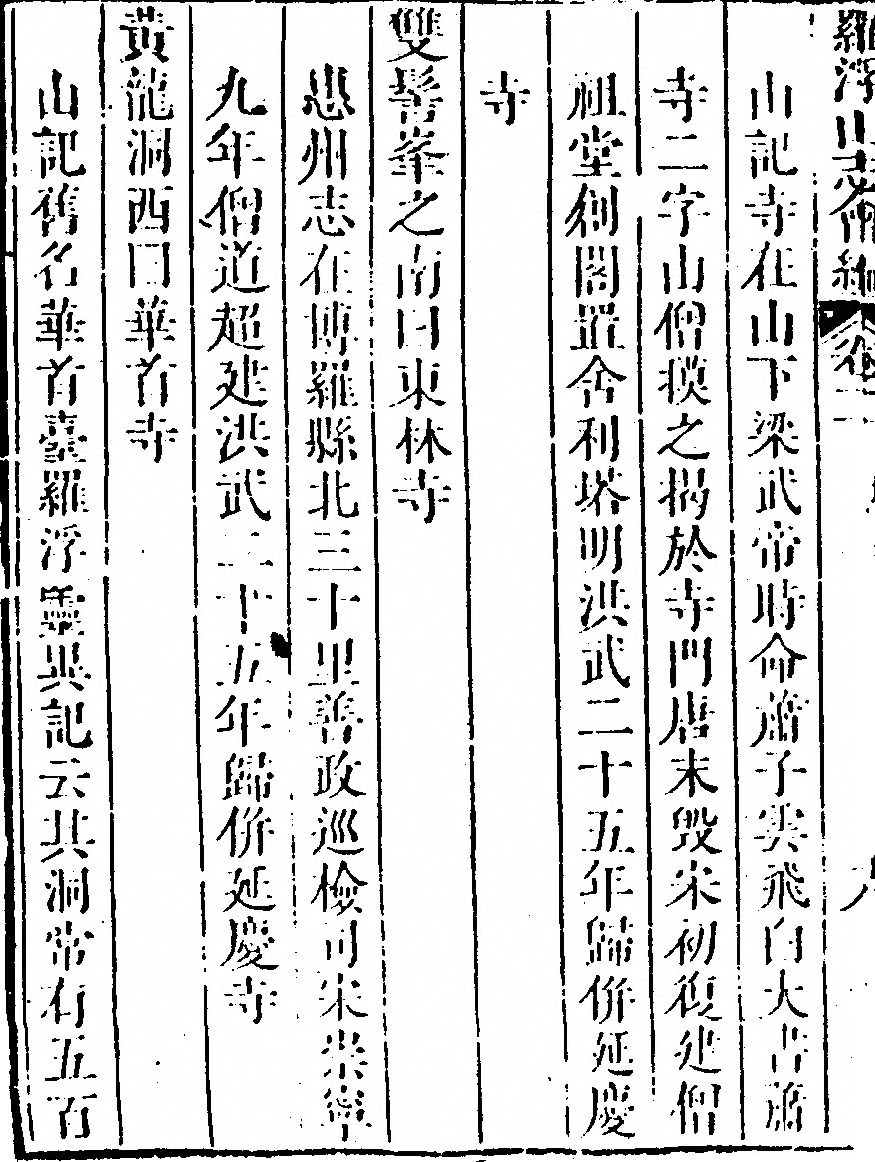 羅浮山志會編 卷二
山記寺在山下梁武帝時命蕭子雲飛白大書蕭
寺二字山僧摸之揭於寺門唐末毀宋初復建僧
祖堂創閣置舍利塔明洪武二十五年歸併延慶
寺
雙髻峯之南曰東林寺
惠州志在博羅縣北三十里善政巡檢司宋崇寧
九年僧道超建洪武二十五年歸併延慶寺
黃龍洞西曰華首寺
山記舊名華首臺羅浮靈異記云其洞常有五百